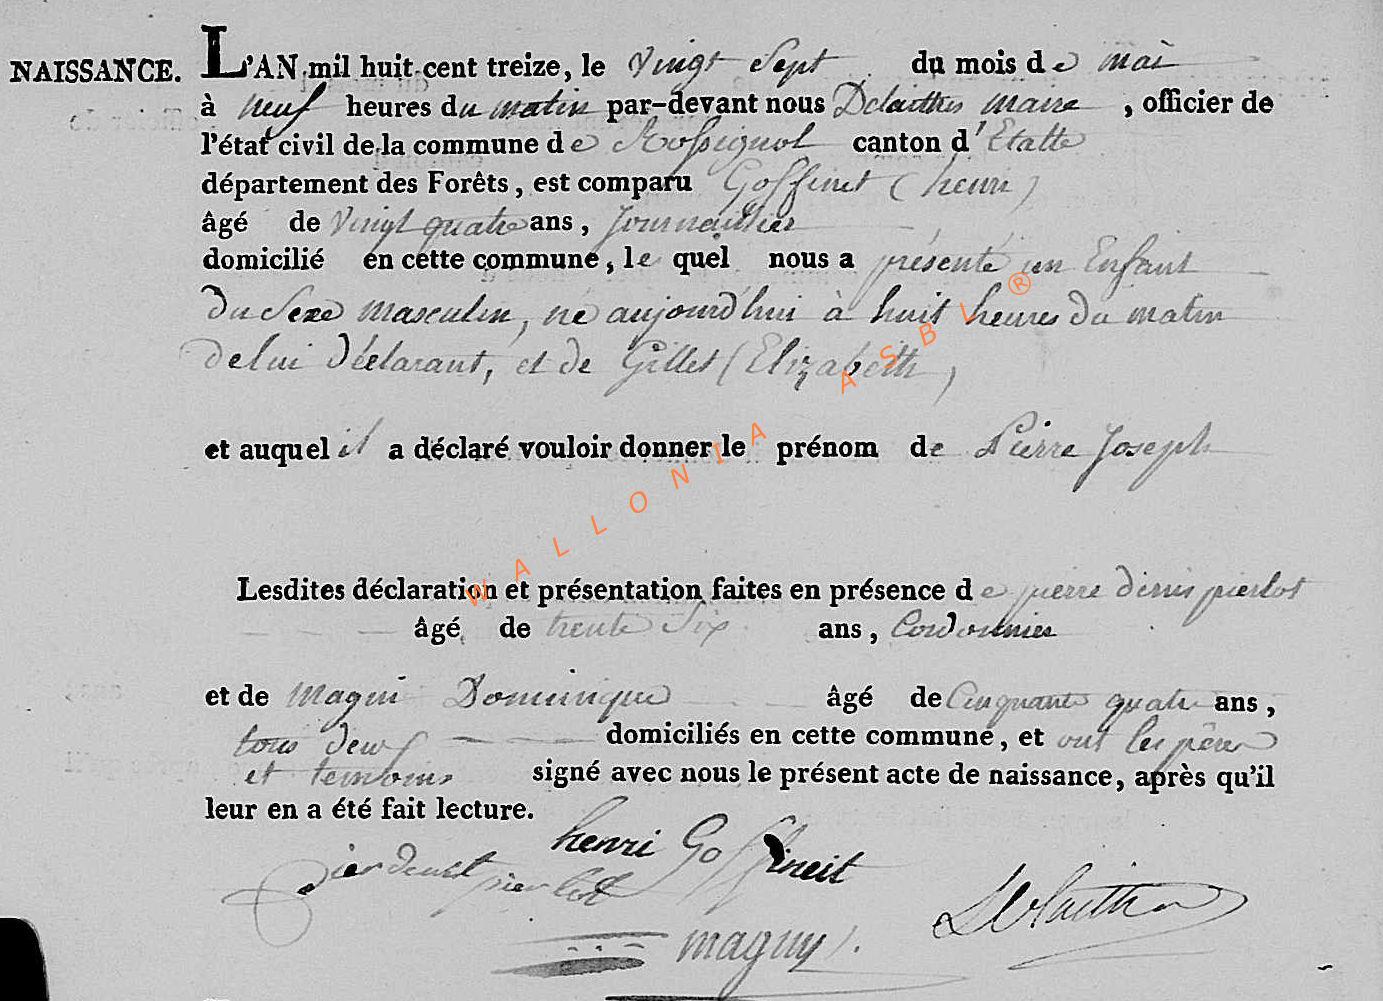 NAISSANCE. L'AN mil huit cent treize, le Vingt Sept du mois de mai
à neuf heures du matin par-devant nous Delaittres maire, officier de
l'état civil de la commune de Rossignol canton d'Etalle
département des Forêts, est comparu Goffinet (henri)
âgé de Vingt quatre ans, Journaillier
domicilié en cette commune, le quel nous a présenté un Enfant
du Sexe masculin, né aujourd'hui à huit heures du matin
de lui Déclarant, et de Gillet (Elizabeth)
et auquel il a déclaré vouloir donner le prénom de Pierre Joseph
Lesdites déclaration et présentation faites en présence de pierre denis pierlot
âgé de trente Six ans, Cordonnier
et de Magni Dominique âgé de Cinquante quatre ans,
tous deux domiciliés en cette commune, et ont les père
et temoins signé avec nous le présent acte de naissance, après qu'il
leur en a été fait lecture.
henri Goffineit
pierlot
Delaittre
maguy
WALLONIA ASBL ®